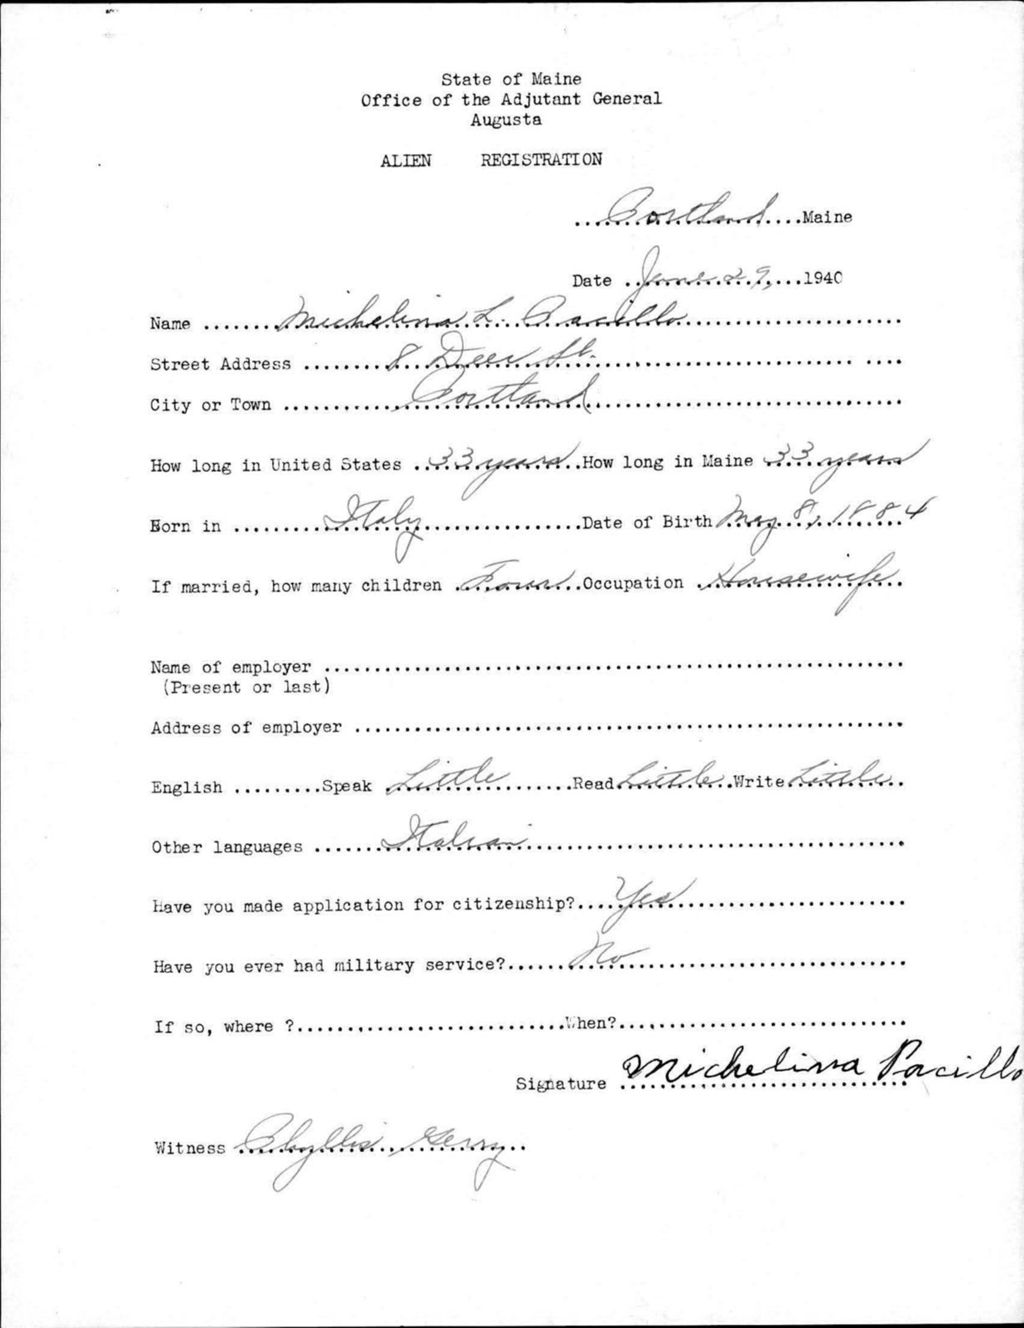 State of Maine
Office of the Adjutant General
Augusta
ALIEN REGISTRATION
Portland Maine
Date June 29, 1940
Name Michelina L. Pacillo
Street Address 8 Deer St.
City or Town Portland
How long in United States 33 years How long in Maine 33 years
Born in Italy Date of Birth May 8, 1884
If married, how many children Four Occupation Housewife
Name of employer
(Present or last)
Address of employer
English Speak Little Read Little Write Little
Other languages Italian
Have you made application for citizenship? Yes
Have you ever had military service? No
If so, where ? When?
Signature Michelina Pacillo
Witness Phyllis Gerry